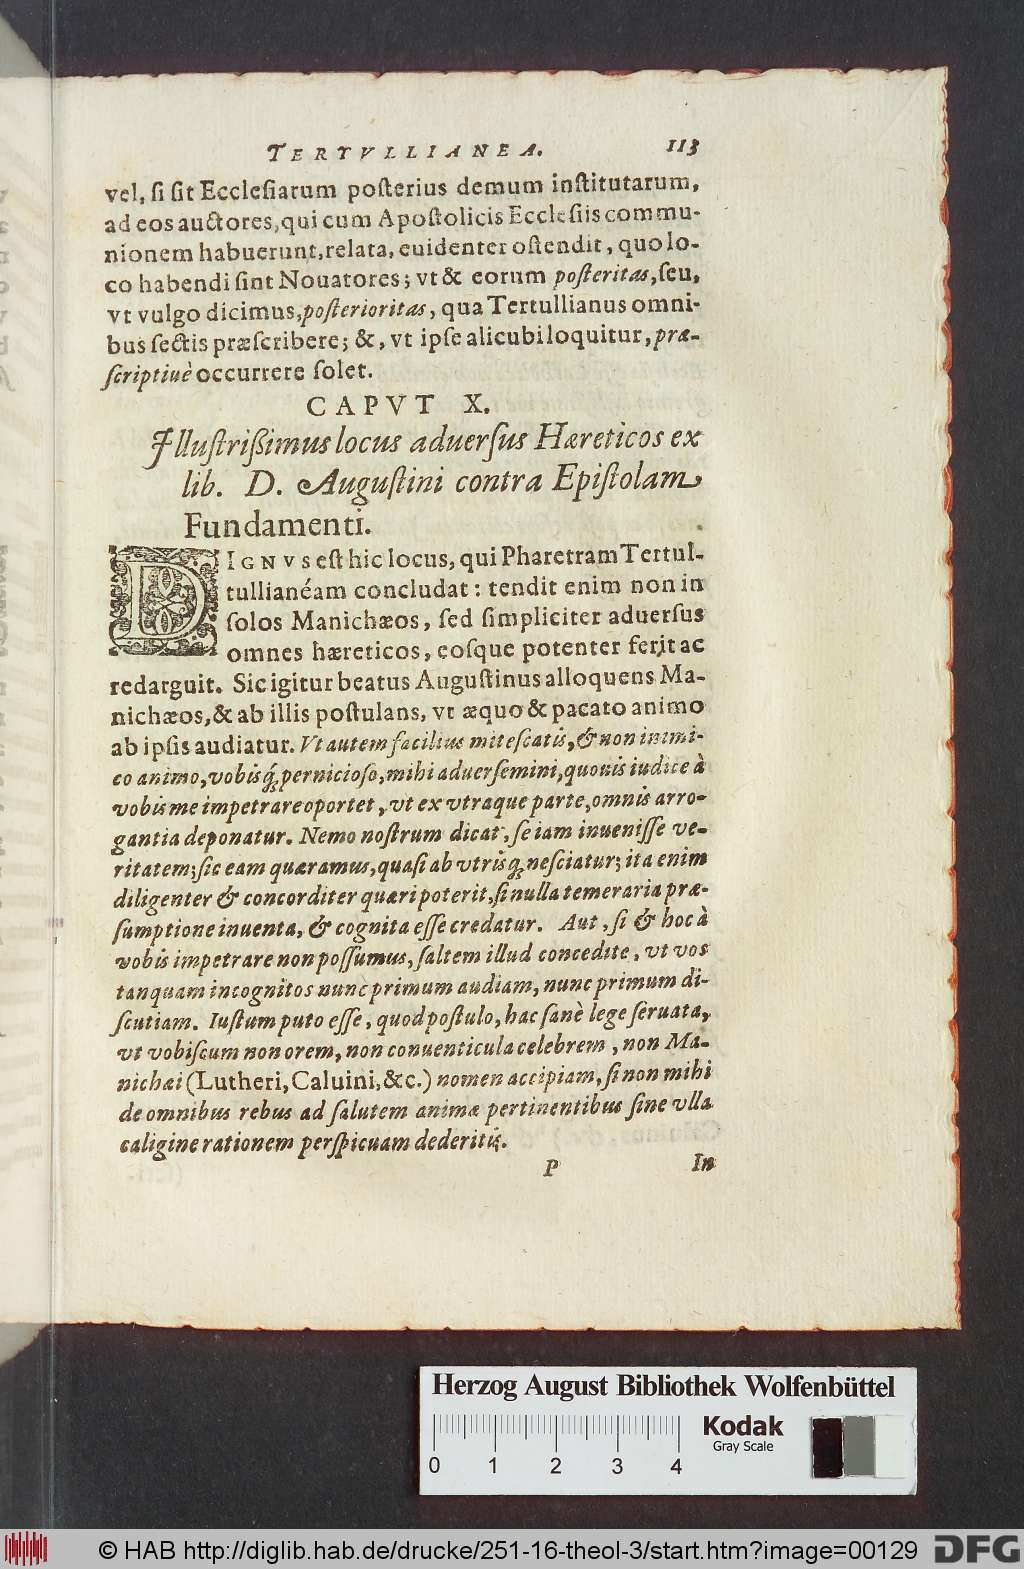 TERTVLLIANEA. 113
vel, ſi ſit Eccleſiarum poſterius demum inſtitutarum,
ad eos auctores, qui cum Apoſtolicis Eccleſiis commu-
nionem habuerunt, relata, euidenter oſtendit, quo lo-
co habendi ſint Nouatores; vt & eorum poſteritas, ſeu,
vt vulgo dicimus, poſterioritas, qua Tertullianus omni-
bus ſectis præſcribere; &, vt ipſe alicubi loquitur, præ-
ſcriptiuè occurrere ſolet.
CAPVT X.
Illuſtriſsimus locus aduerſus Hæreticos ex
lib. D. Auguſtini contra Epiſtolam
Fundamenti.
DIGNVS eſt hic locus, qui Pharetram Tertul-
tullianéam concludat: tendit enim non in
ſolos Manichæos, ſed ſimpliciter aduerſus
omnes hæreticos, eoſque potenter ferit ac
redarguit. Sic igitur beatus Auguſtinus alloquens Ma-
nichæos, & ab illis poſtulans, vt æquo & pacato animo
ab ipſis audiatur. Vt autem facilius miteſcatis, & non inimi-
co animo, vobisq́; pernicioſo, mihi aduerſemini, quouis iudice à
vobis me impetrare oportet, vt ex vtraque parte, omnis arro-
gantia deponatur. Nemo noſtrum dicat, ſe iam inueniſſe ve-
ritatem; ſic eam quæramus, quaſi ab vtrisq́; neſciatur; ita enim
diligenter & concorditer quæri poterit, ſi nulla temeraria præ-
ſumptione inuenta, & cognita eſſe credatur. Aut, ſi & hoc à
vobis impetrare non poſſumus, ſaltem illud concedite, vt vos
tanquam incognitos nunc primum audiam, nunc primum di-
ſcutiam. Iuſtum puto eſſe, quod poſtulo, hac ſanè lege ſeruata,
vt vobiſcum non orem, non conuenticula celebrem, non Ma-
nichæi (Lutheri, Caluini, &c.) nomen accipiam, ſi non mihi
de omnibus rebus ad ſalutem animæ pertinentibus ſine vlla
caligine rationem perſpicuam dederitis.
P In
Herzog August Bibliothek Wolfenbüttel
Kodak
Gray Scale
0 1 2 3 4
© HAB http://diglib.hab.de/drucke/251-16-theol-3/start.htm?image=00129 DFG